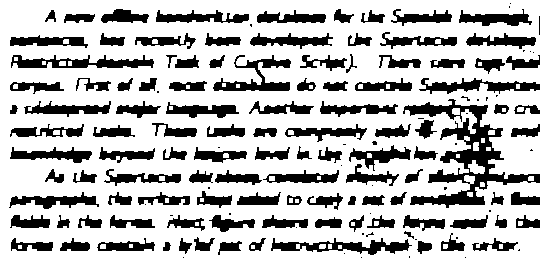 A new offline handwritten database for the Spanish language,
sentences, has recently been developed: the Spartacus database
Restricted-domain Task of Cursive Script). There were two
corpus. First of all, most databases do not contain Spanish
a widespread major language. Another important reason to
restricted tasks. These tasks are commonly used in and
knowledge beyond the lexicon level in the recognition
As the Spartacus database consisted mainly of short
paragraphs, the writers were asked to copy a set of sentences in
fields in the forms. Next, figure shows one of the forms used in the
forms also contain a brief set of instructions given to the writer.